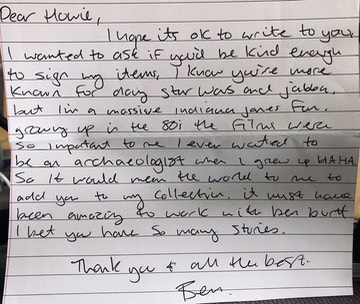 Dear Howie,
I hope its ok to write to you,
I wanted to ask if you'd be kind enough
to sign my items, I know you're more
known for doing star wars and jabba,
but I'm a massive indiana jones fan,
growing up in the 80s the films were
so important to me I even wanted to
be an archaeologist when I grew up HAHA
So it would mean the world to me to
add you to my collection, it must have
been amazing to work with ben burtt
I bet you have so many stories.
Thank you & all the best.
Ben.